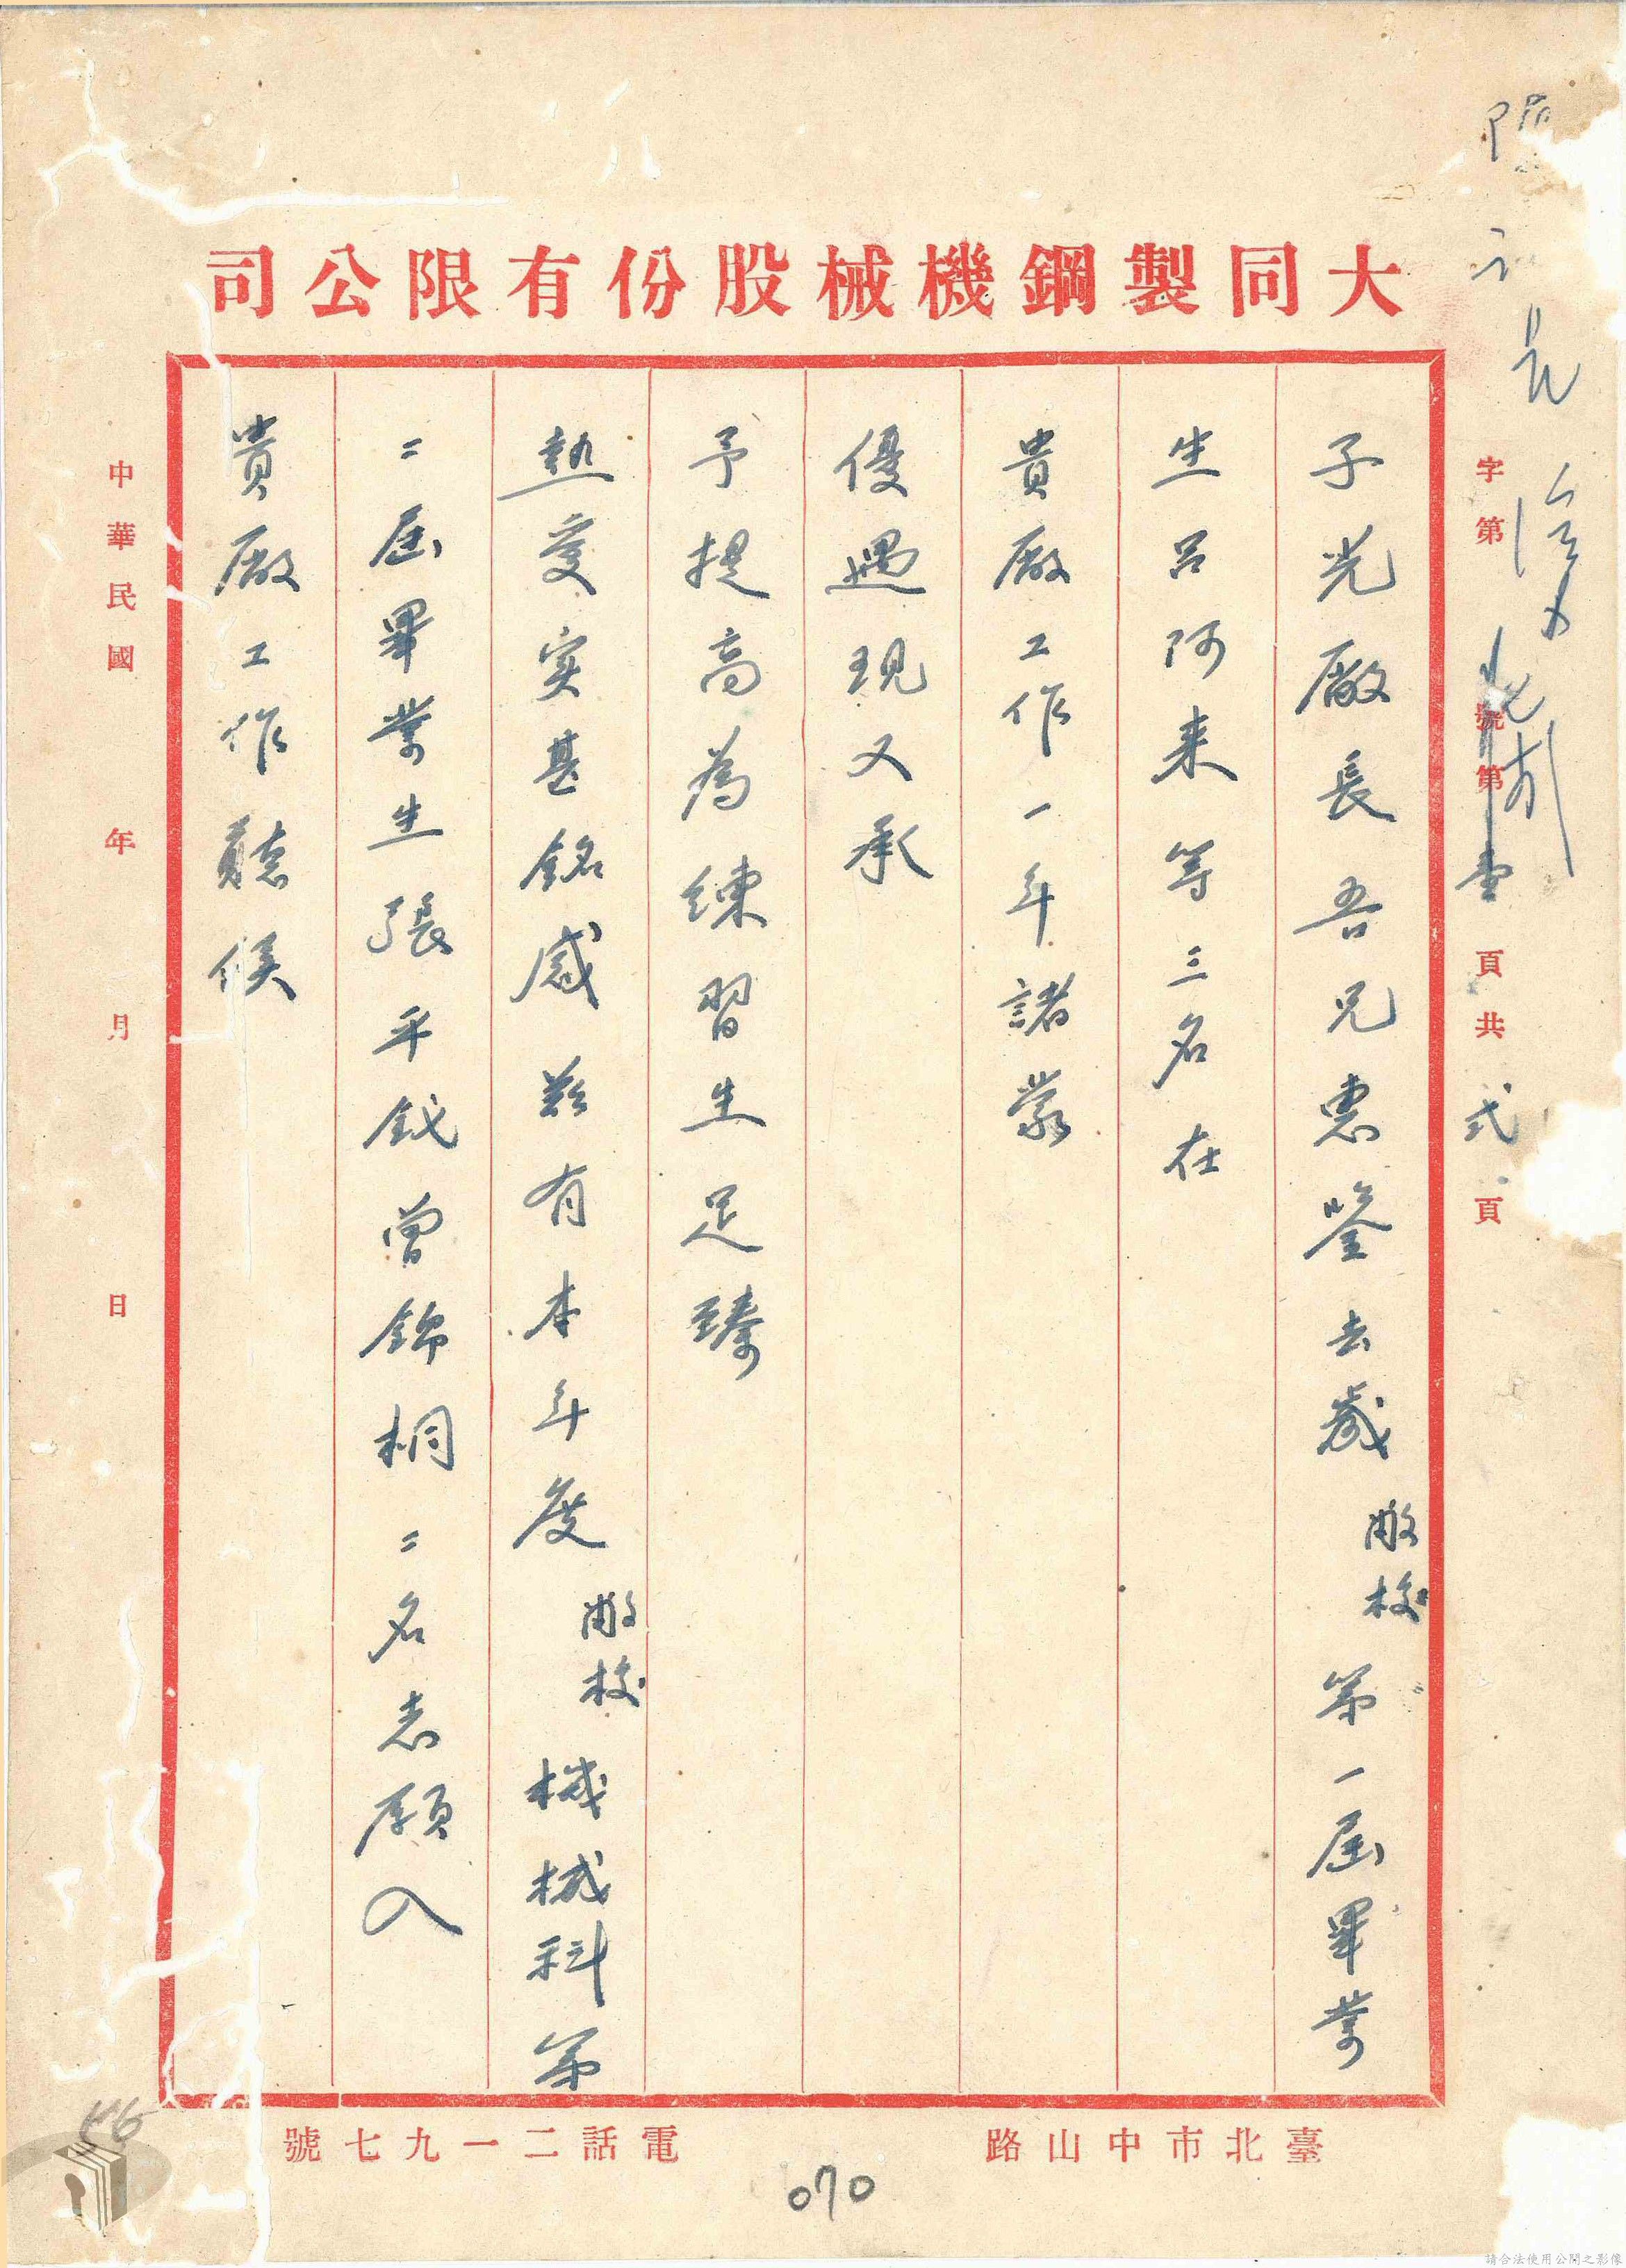 大同製鋼機械股份有限公司
字第 號第壹頁共弍頁
子光廠長吾兄惠鑒去歲敝校第一屆畢業
生呂阿来等三名在
貴廠工作一年諸蒙
優遇現又承
予提高為練習生足臻
熱愛实甚銘感茲有本年度敝校機械科第
二屆畢業生張平錢曾錦桐二名志願入
貴廠工作聽候
中華民國 年 月 日
臺北市中山路
電話二一九七號
070
56
請合法使用公開之影像